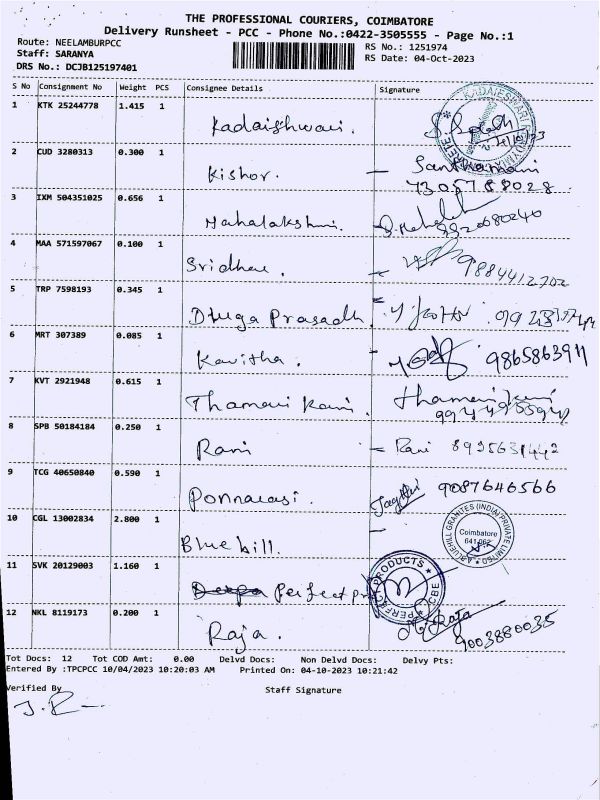 THE PROFESSIONAL COURIERS, COIMBATORE
Delivery Runsheet - PCC - Phone No.:0422-3505555 - Page No.:1
Route: NEELAMBURPCC
Staff: SARANYA
DRS No.: DCJB125197401
RS No.: 1251974
RS Date: 04-Oct-2023
S No Consignment No Weight PCS Consignee Details Signature
1 KTK 25244778 1.415 1 Kadaishwari.
2 CUD 3280313 0.300 1 Kishor. - Santhamani
7305788028
3 IXM 504351025 0.656 1 Mahalakshmi.
4 MAA 571597067 0.100 1 Sridhar. 9884412702
5 TRP 7598193 0.345 1 Durga Prasadh.
6 MRT 307389 0.085 1 Kavitha. 9865863911
7 KVT 2921948 0.615 1 Thamarai Kani.
8 SPB 50184184 0.250 1 Rani - Rani 8925631442
9 TCG 40650840 0.590 1 Ponnarasi. 9087646566
10 CGL 13002834 2.800 1 Bluehill.
BLUEHILL GRANITES (INDIA) PRIVATE LIMITED
Coimbatore
641 062
11 SVK 20129003 1.160 1 Perfect pr
PERFECT PRODUCTS CBE
12 NKL 8119173 0.200 1 Raja. Raja
9003880035
Tot Docs: 12 Tot COD Amt: 0.00 Delvd Docs: Non Delvd Docs: Delvy Pts:
Entered By :TPCPCC 10/04/2023 10:20:03 AM Printed On: 04-10-2023 10:21:42
Verified By Staff Signature